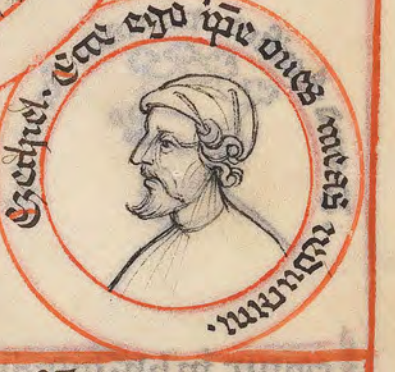 Ezechiel. Ecce ego ip̄e oues meas requiram.